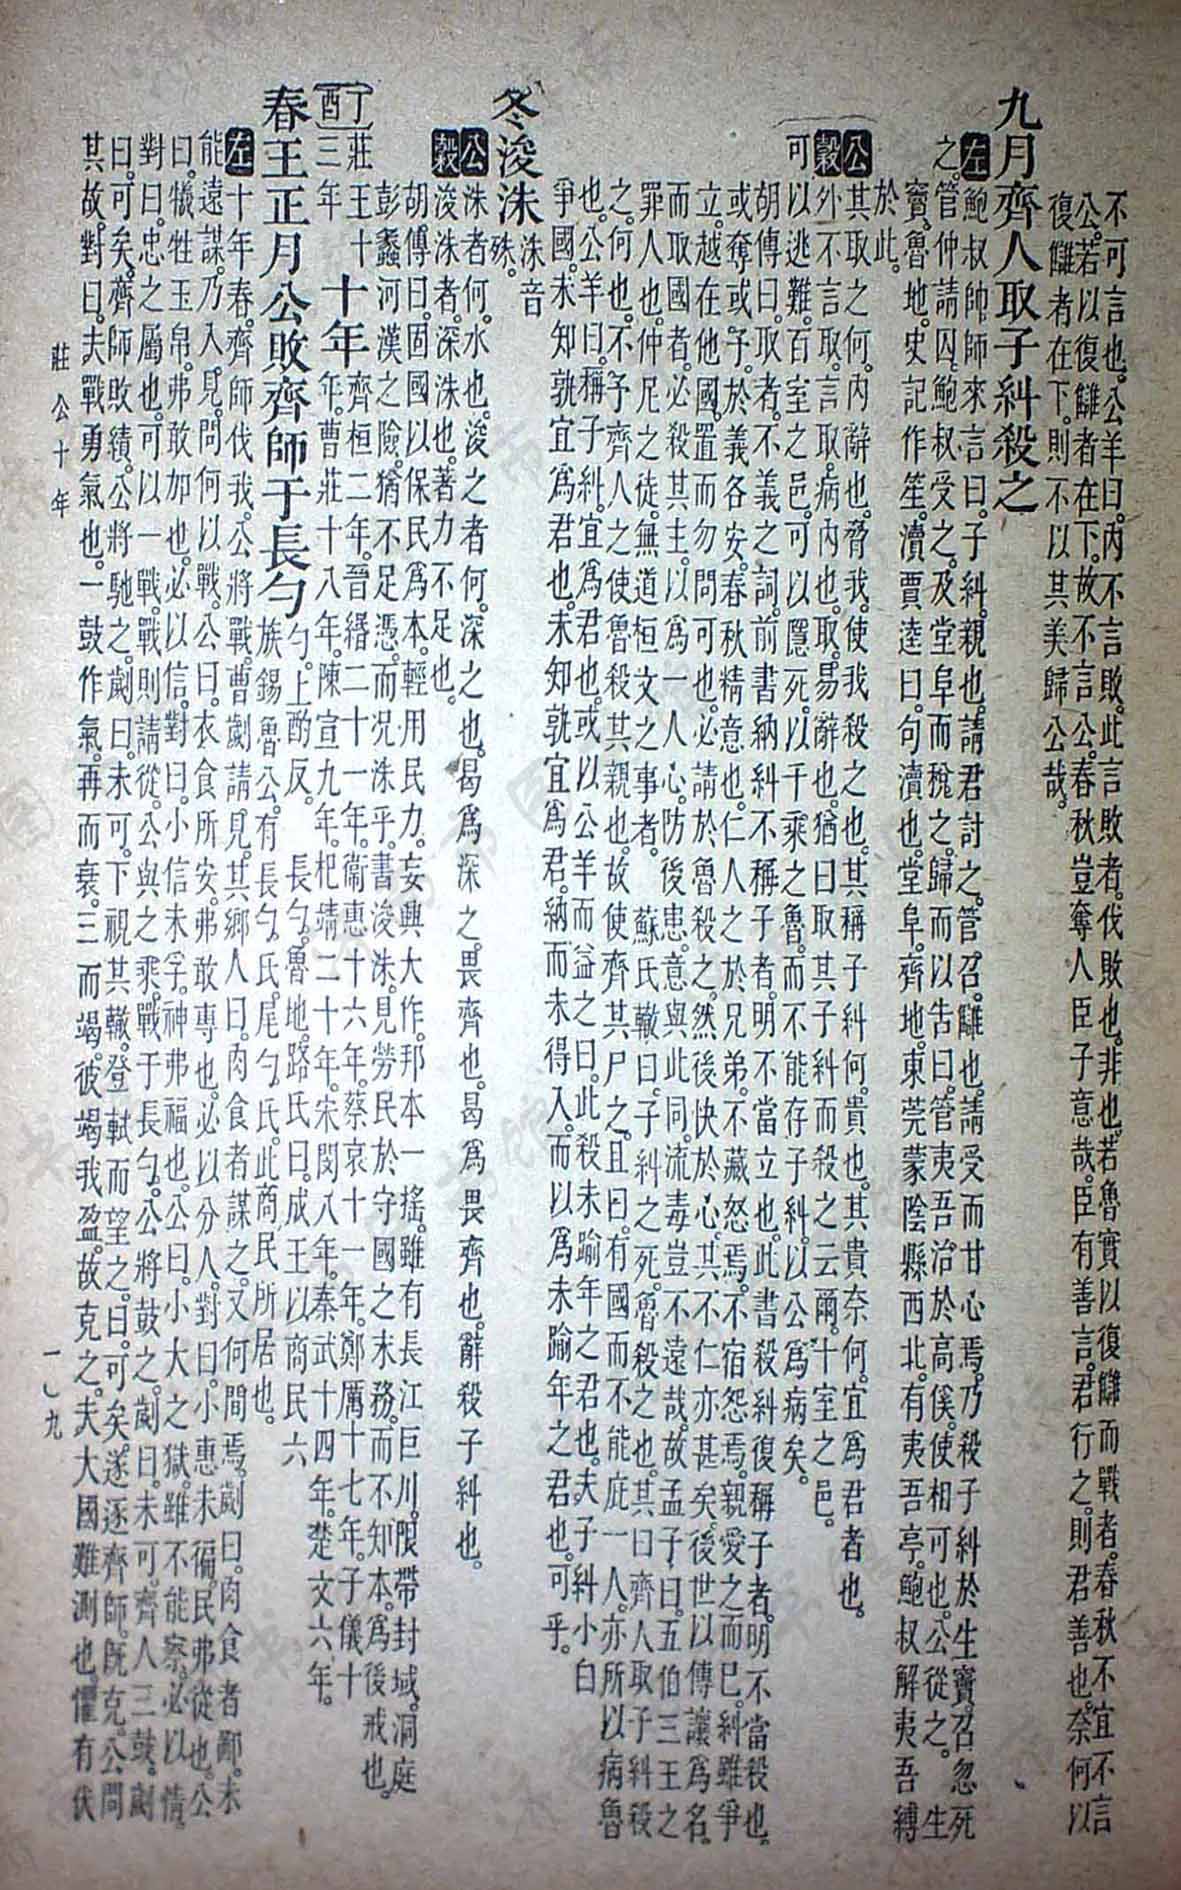 不可言也。公羊曰。內不言敗。此言敗者。伐敗也。非也。若魯實以復讎而戰者。春秋不宜不言
公。若以復讎者在下。故不言公。春秋豈奪人臣子意哉。臣有善言。君行之。則君善也。奈何以
復讎者在下。則不以其美歸公哉。
九月齊人取子糾殺之
左鮑叔帥師來言曰。子糾。親也。請君討之。管召。讎也。請受而甘心焉。乃殺子糾於生竇。召忽死
之。管仲請囚。鮑叔受之。及堂阜而稅之。歸而以告曰。管夷吾。治於高傒。使相可也。公從之。生
竇。魯地。史記作笙。瀆賈逵曰。句瀆也。堂阜。齊地。東莞蒙陰縣西北。有夷吾亭。鮑叔解夷吾縛
於此。
公其取之何。內辭也。脅我。使我殺之也。其稱子糾何。貴也。其貴奈何。宜爲君者也。
穀外不言取。言取。病內也。取。易辭也。猶曰取其子糾而殺之云爾。十室之邑。
可以逃難。百室之邑。可以隱死。以千乘之魯。而不能存子糾。以公爲病矣。
胡傳曰。取者。不義之詞。前書納糾不稱子者。明不當立也。此書殺糾復稱子者。明不當殺也。
或奪或予。於義各安。春秋精意也。仁人之於兄弟。不藏怒焉。不宿怨焉。親愛之而已。糾雖爭
立。越在他國。置而勿問可也。必請於魯殺之。然後快於心。其不仁亦甚矣。後世以傳讓爲名。
而取國者。必殺其主。以爲一人心。防後患。意與此同。流毒豈不遠哉。故孟子曰。五伯三王之
罪人也。仲尼之徒。無道桓文之事者。 蘇氏轍曰。子糾之死。魯殺之也。其曰齊人取子糾殺
之。何也。不予齊人之使魯殺其親也。故使齊其尸之。且曰。有國而不能庇一人。亦所以病魯
也。公羊曰。稱子糾。宜爲君也。或以公羊而益之曰。此殺未踰年之君也。夫子糾小白
爭國。未知孰宜爲君也。未知孰宜爲君。納而未得入。而以爲未踰年之君也。可乎。
冬浚洙洙音
殊。
公洙者何。水也。浚之者何。深之也。曷爲深之。畏齊也。曷爲畏齊也。辭殺子糾也。
穀浚洙者。深洙也。著力不足也。
胡傳曰。固國以保民爲本。輕用民力。妄興大作。邦本一搖。雖有長江巨川。限帶封域。洞庭
彭蠡河漢之險。猶不足憑。而况洙乎。書浚洙。見勞民於守國之末務。而不知本。爲後戒也。
丁酉莊王十三年
十年齊桓二年。晉緡二十一年。衞惠十六年。蔡哀十一年。鄭厲十七年。子儀十
年。曹莊十八年。陳宣九年。杞靖二十年。宋閔八年。秦武十四年。楚文六年。
春王正月公敗齊師于長勺勺。上酌反。 長勺。魯地。路氏曰。成王以商民六
族錫魯公。有長勺氏。尾勺氏。此商民所居也。
左十年春。齊師伐我。公將戰。曹劌請見。其鄉人曰。肉食者謀之。又何間焉。劌曰。肉食者鄙。未
能遠謀。乃入。見。問何以戰。公曰。衣食所安。弗敢專也。必以分人。對曰。小惠未徧。民弗從也。公
曰。犧牲玉帛。弗敢加也。必以信。對曰。小信未孚。神弗福也。公曰。小大之獄。雖不能察。必以情。
對曰。忠之屬也。可以一戰。戰則請從。公與之乘。戰于長勺。公將鼓之。劌曰。未可。齊人三鼓。劌
曰。可矣。齊師敗績。公將馳之。劌曰。未可。下視其轍。登軾而望之。曰。可矣。遂逐齊師。旣克。公問
其故。對曰。夫戰勇氣也。一鼓作氣。再而衰。三而竭。彼竭我盈。故克之。夫大國難測也。懼有伏
莊公十年
一〇九